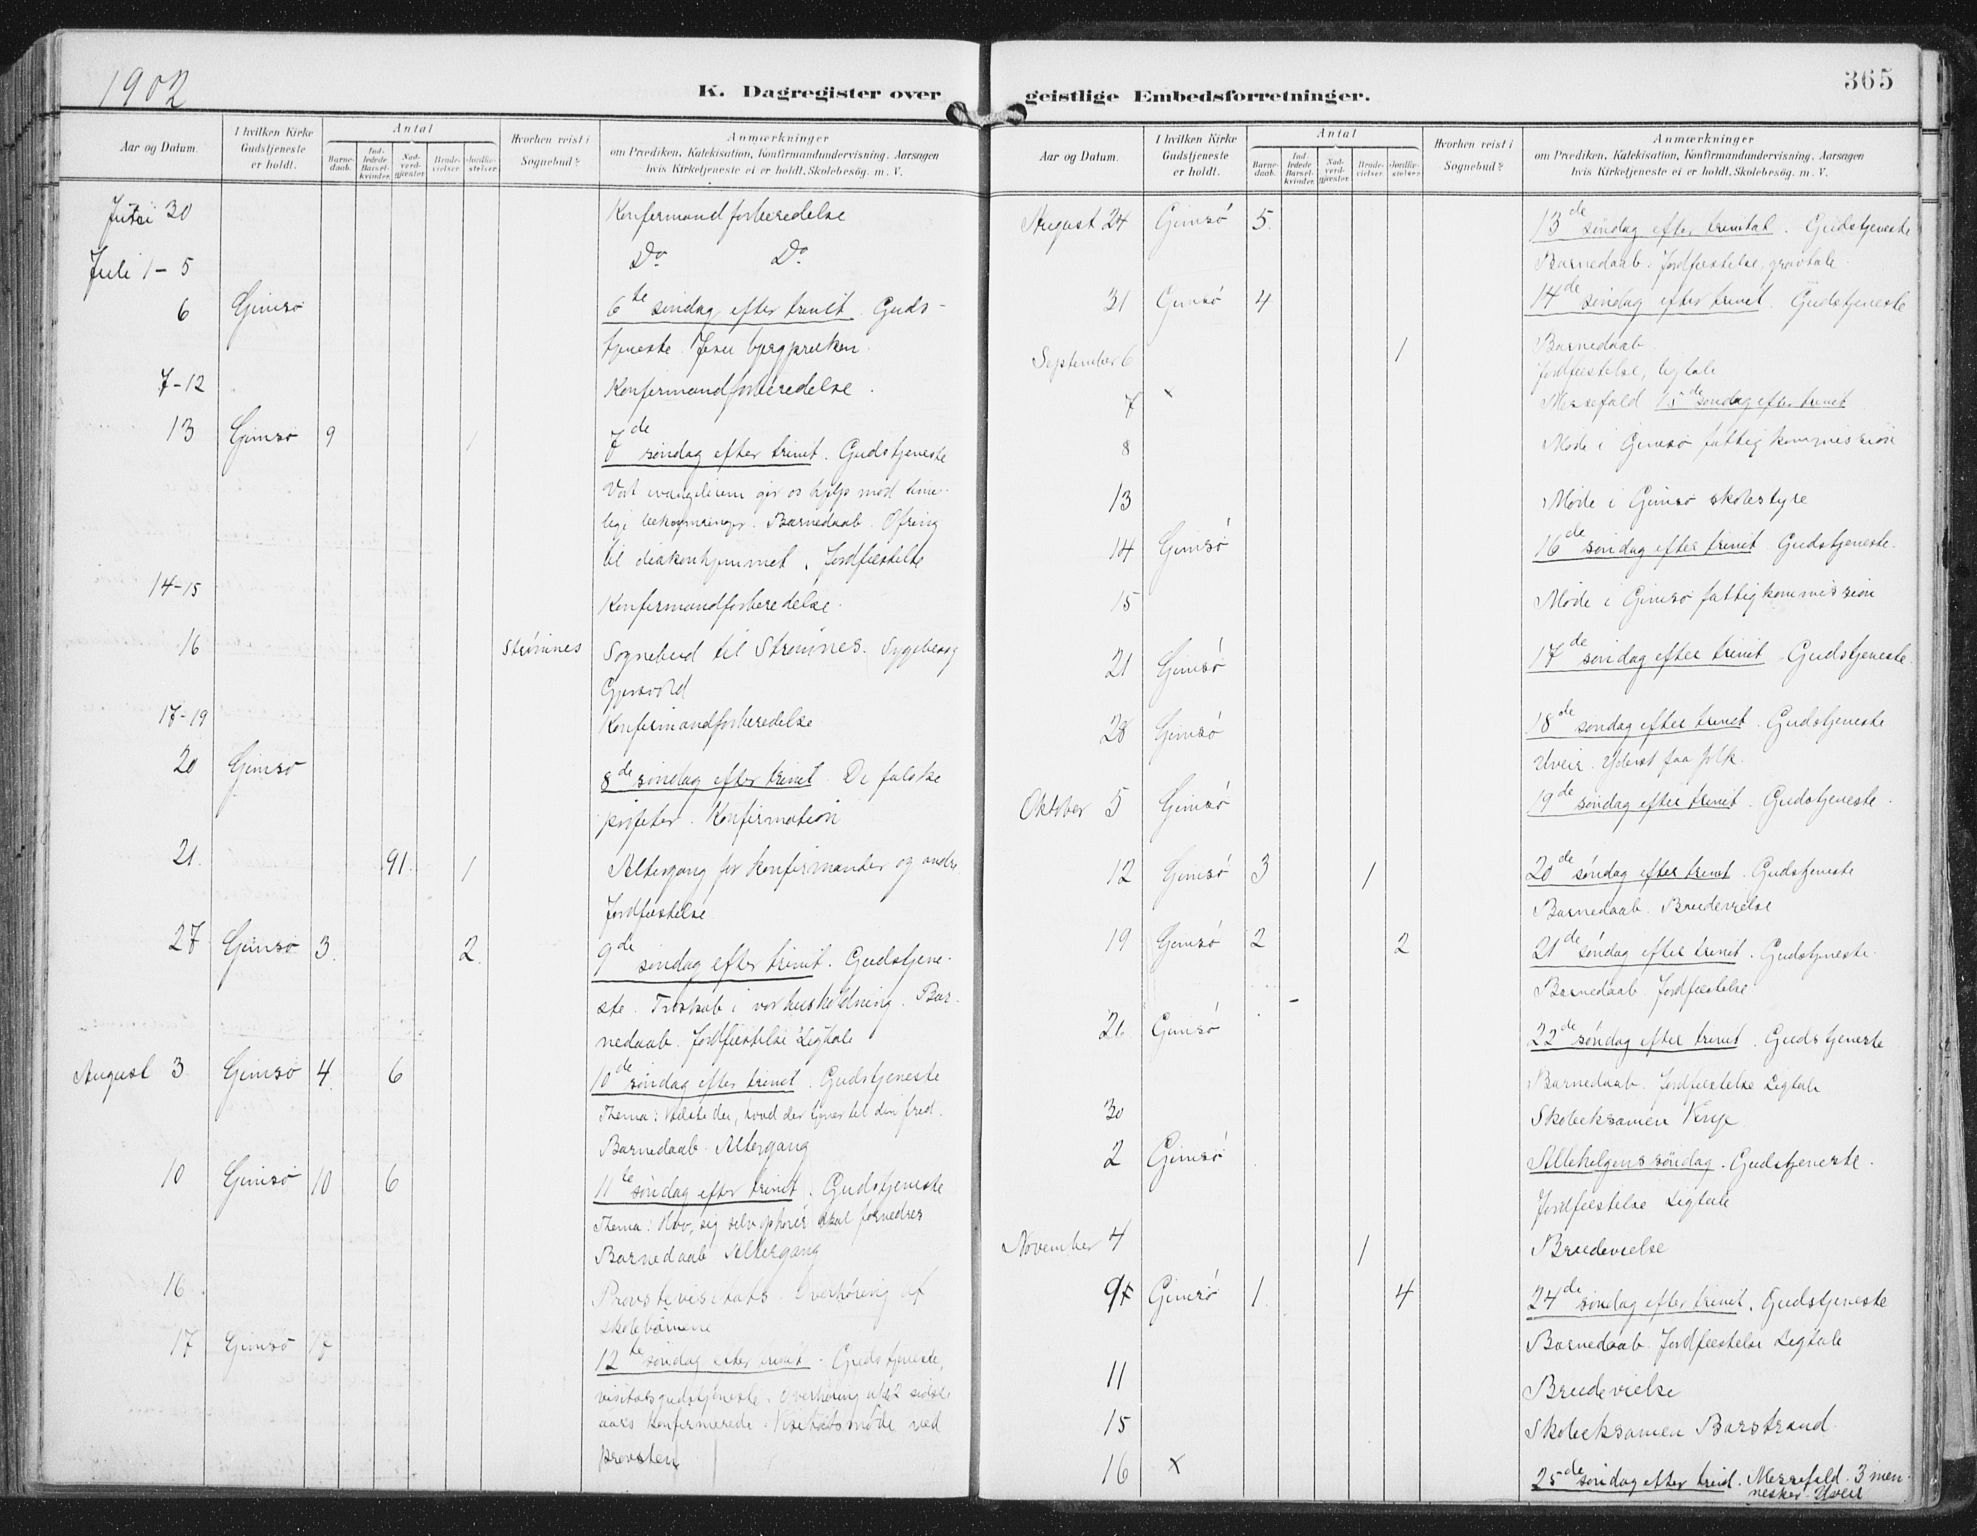 1902
K. Dagregister over
Aar og Datum.
I hvilken Kirke Gudstjeneste er holdt.
Antal
Barnedaab.
Indledede Barselkvinder.
Nadverdgjæster.
Brudevielser.
Jordfæstelser.
Hvorhen reist i Sognebud?
Anmærkninger
om Prædiken, Katekisation, Konfirmandundervisning. Aarsagen
hvis Kirketjeneste ei er holdt. Skolebesøg. m. V.
30 Konfirmandforberedelse
Juli 1-5 Do Do
6 Gimsø 6te søndag efter trinit. Guds-
tjeneste. Jesu bjergpræken.
7-12 Konfirmandforberedelse.
13 Gimsø 9 1 7de
søndag efter trinit. Gudstjeneste
Vort evangelium gir os hjelp mod time-
lige bekymringer. Barnedaab. Ofring
til diakonhjemmet. Jordfæstelse
14-15 Konfirmandforberedelse.
16 Strømnes Sognebud til Strømnes.
17-19 Konfirmandforberedelse
20 Gimsø 8de søndag efter trinit. De falske
profeter. Konfirmation
21. 91. 1 Altergang for konfirmander og andre
Jordfæstelse
27 Gimsø 3. 2. 9de
søndag efter trinit. Gudstjene-
ste. Troskab i vor husholdning. Bar-
nedaab. Jordfæstelse Ligtale
August 3 Gimsø 4. 6 10de søndag efter trinit. Gudstjeneste
Thema: hvad der tjener til din fred.
Barnedaab. Altergang
10 Gimsø 10 6 11te søndag efter trinit. Gudstjeneste
Thema: Hvo, sig selv ophøier skal fornedres
Barnedaab Altergang
16 Provstevisitats. Overhøring af
skolebørnene
17 Gimsø 17 12te søndag efter trinit. Gudstjeneste,
visitatsgudstjeneste. Overhøring af 2 sidste
aars konfirmerede. Visitatsmøde ved
provsten
365
geistlige Embedsforretninger.
Aar og Datum.
I hvilken Kirke Gudstjeneste er holdt.
Antal
Barnedaab.
Indledede Barselkvinder.
Nadverdgjæster.
Brudevielser.
Jordfæstelser.
Hvorhen reist i Sognebud?
Anmærkninger
om Prædiken, Katekisation, Konfirmandundervisning. Aarsagen
hvis Kirketjeneste ei er holdt. Skolebesøg. m. V.
August 24 Gimsø 5. 13de søndag efter trinitat. Gudstjeneste
Barnedaab. Jordfæstelse, gravtale.
31 Gimsø 4 14de søndag efter trinit. Gudstjeneste
Barnedaab
September 6 1 Jordfæstelse, ligtale
7 x Messefald 15de søndag efter trinit
8 Møde i Gimsø fattigkommission
13 Møde i Gimsø skolestyre
14 Gimsø 16de søndag efter trinit Gudstjeneste.
15 Møde i Gimsø fattigkommission
21 Gimsø 17de søndag efter trinit Gudstjeneste.
28 Gimsø 18de søndag efter trinit. Gudstjeneste
Uveir. Yderst faa folk.
Oktober 5 Gimsø 19de søndag efter trinit. Gudstjeneste.
12 Gimsø 3 1 20de søndag efter trinit. Gudstjeneste
Barnedaab. Brudevielse
19 Gimsø 2 2 21de søndag efter trinit. Gudstjeneste.
Barnedaab Jordfæstelse
26 Gimsø 22de søndag efter trinit. Gudstjeneste
Barnedaab. Jordfæstelse Ligtale
30 Skoleeksamen
2 Gimsø Allehelgenssøndag. Gudstjeneste.
Jordfæstelse Ligtale
November 4 1 Brudevielse
9 Gimsø 1. 4 24de søndag efter trinit. Gudstjeneste
Barnedaab. Jordfæstelse Ligtale
11 Brudevielse
15 Skoleeksamen Barstrand.
16 x 25de søndag efter trinit. Messefald. 3 men-
nesker. Uveir